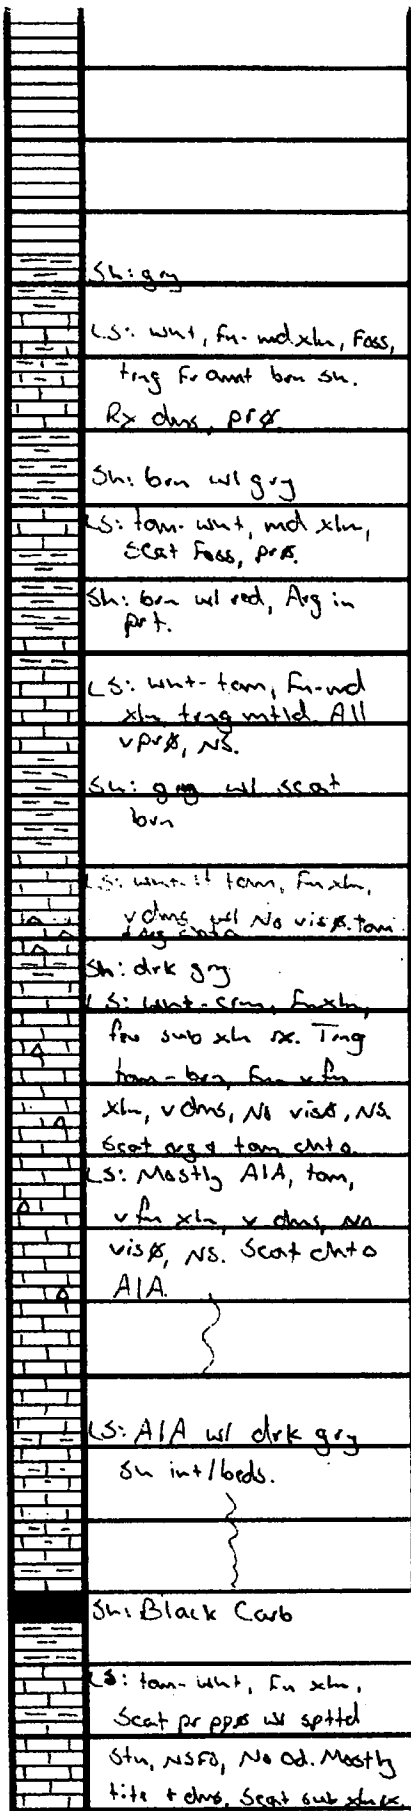 Sh: gry
LS: wht, fn-md xln, Foss,
trng Fr amt brn sh.
Rx dns, prø
Sh: brn w/ gry
LS: tan-wht, md xln,
Scat Foss, prø.
Sh: brn w/ red, Arg in
prt.
LS: wht-tan, fn-md
xln, trng mtld. All
v prø, NS.
Sh: gry w/ scat
brn
LS: wht-lt tan, fn xln,
v dns w/ No visø. tan
Sh: drk gry
LS: wht-crm, fn xln,
few sub xln rx. Trng
tan-brn, fn-v fn
xln, v dns, No visø, NS.
Scat org & tan chts.
LS: Mostly AIA, tan,
v fn xln, v dns, No
visø, NS. Scat chts
AIA.
LS: AIA w/ drk gry
Sh int/beds.
Sh: Black Carb
LS: tan-wht, fn xln,
Scat pr ppø w/ spttd
Stn, NSFO, No Od. Mostly
tite + dns, Scat sub xln rx.